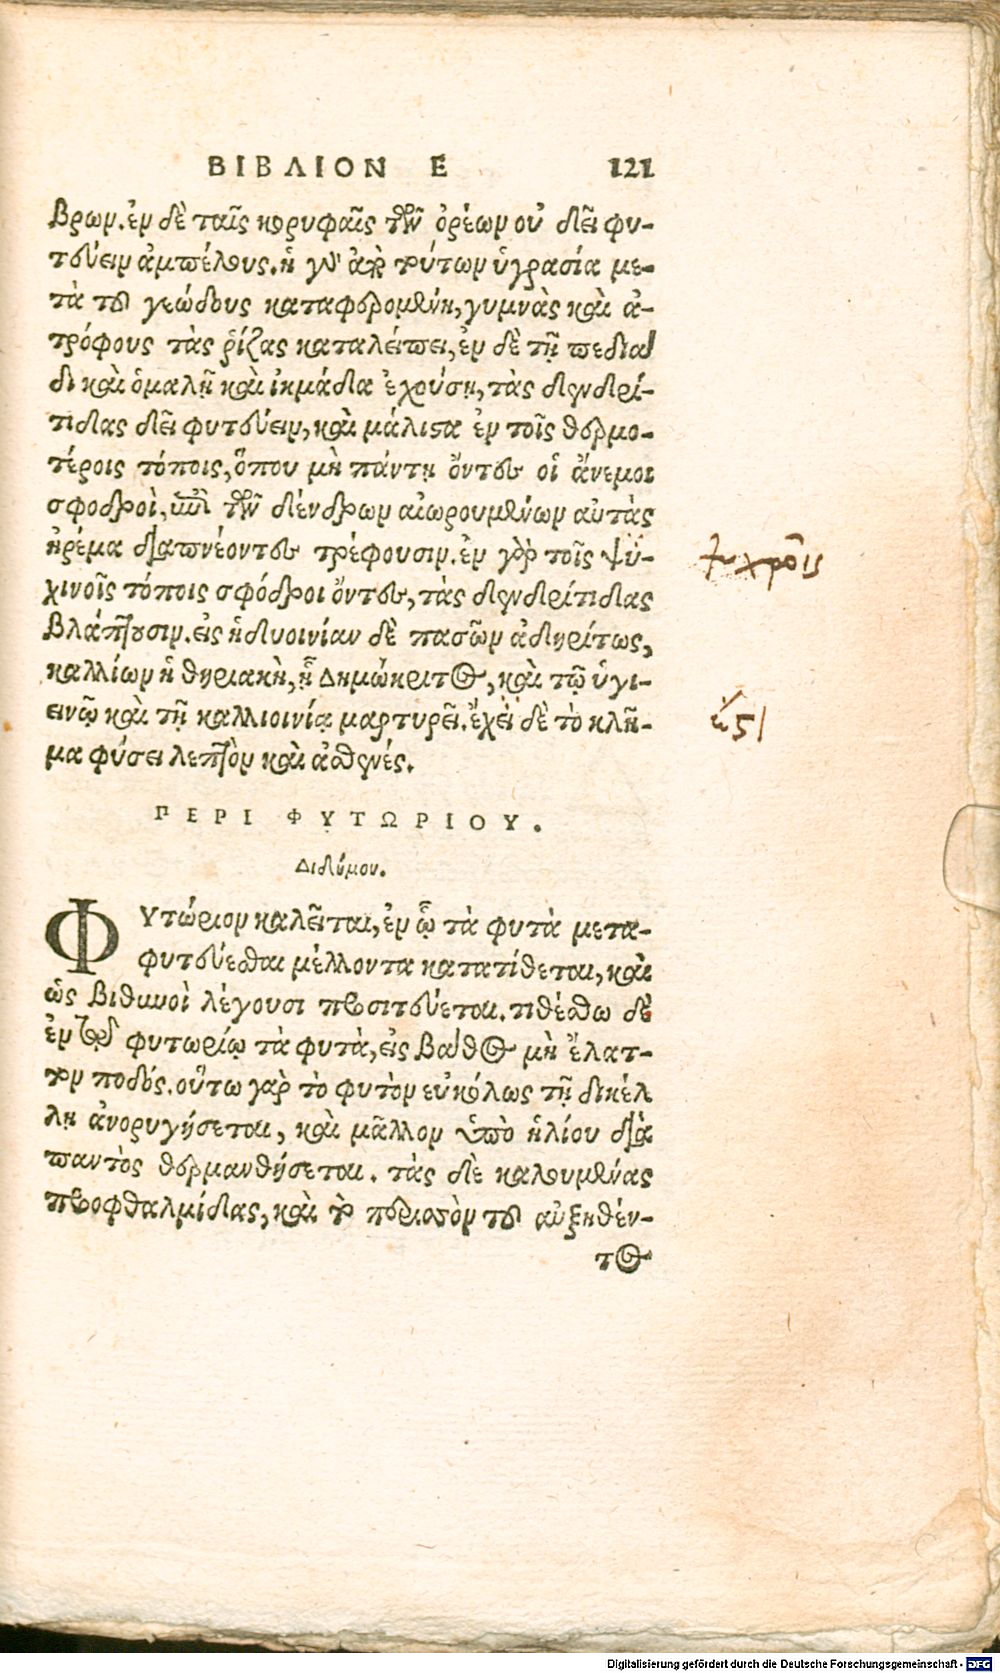 ΒΙΒΛΙΟΝ Ε 121
βρων. ἐν δὲ ταῖς κορυφαῖς τῶν ὀρέων οὐ δεῖ φυ-
τεύειν ἀμπέλους. ἡ γὰρ ἀπὸ τούτων ὑγρασία με-
τὰ τοῦ γεώδους καταφερομένη, γυμνὰς καὶ ἀ-
τρόφους τὰς ῥίζας καταλείπει, ἐν δὲ τῇ πεδιά
δι καὶ ὁμαλῇ καὶ ἰκμάδια ἐχούσῃ, τὰς δενδρί-
τιδας δεῖ φυτεύειν, καὶ μάλιστα ἐν τοῖς θερμο-
τέροις τόποις, ὅπου μὴ πάντῃ ὄντες οἱ ἄνεμοι
σφοδροὶ, ἐπὶ τῶν δένδρων αἰωρουμένων αὐτὰς
ἠρέμα διαπνέοντες τρέφουσιν. ἐν γὰρ τοῖς ψύ-
χινοῖς τόποις σφόδροι ὄντες, τὰς δενδρίτιδας
βλάπτουσιν. εἰς ἡδυοινίαν δὲ πασῶν ἀδηρίτως,
καλλίων ἡ θηριακὴ, ᾗ Δημώκριτος, καὶ τῷ ὑγι-
εινῷ καὶ τῇ καλλιοινίᾳ μαρτυρεῖ. ἔχει δὲ τὸ κλῆ-
μα φύσει λεπτὸν καὶ ἀσθενές.
ΠΕΡΙ ΦΥΤΩΡΙΟΥ.
Διδύμου.
ΦΥτώριον καλεῖται, ἐν ᾧ τὰ φυτὰ μετα-
φυτεύεσθαι μέλλοντα κατατίθεται, καὶ
ὡς Βιθυνοὶ λέγουσι προσιτεύεται. τιθέσθω δὲ
ἐν τῷ φυτωρίῳ τὰ φυτὰ, εἰς βάθος μὴ ἔλατ-
τον ποδός. οὕτω γὰρ τὸ φυτὸν εὐκόλως τῇ δικέλ
λῃ ἀνορυγήσεται, καὶ μᾶλλον ὑπὸ ἡλίου διὰ
παντὸς θερμανθήσεται. τὰς δὲ καλουμένας
προφθαλμίδας, καὶ τὸ περισσὸν τοῦ αὐξηθέν-
τος
ψυχροῖς
Digitalisierung gefördert durch die Deutsche Forschungsgemeinschaft - DFG